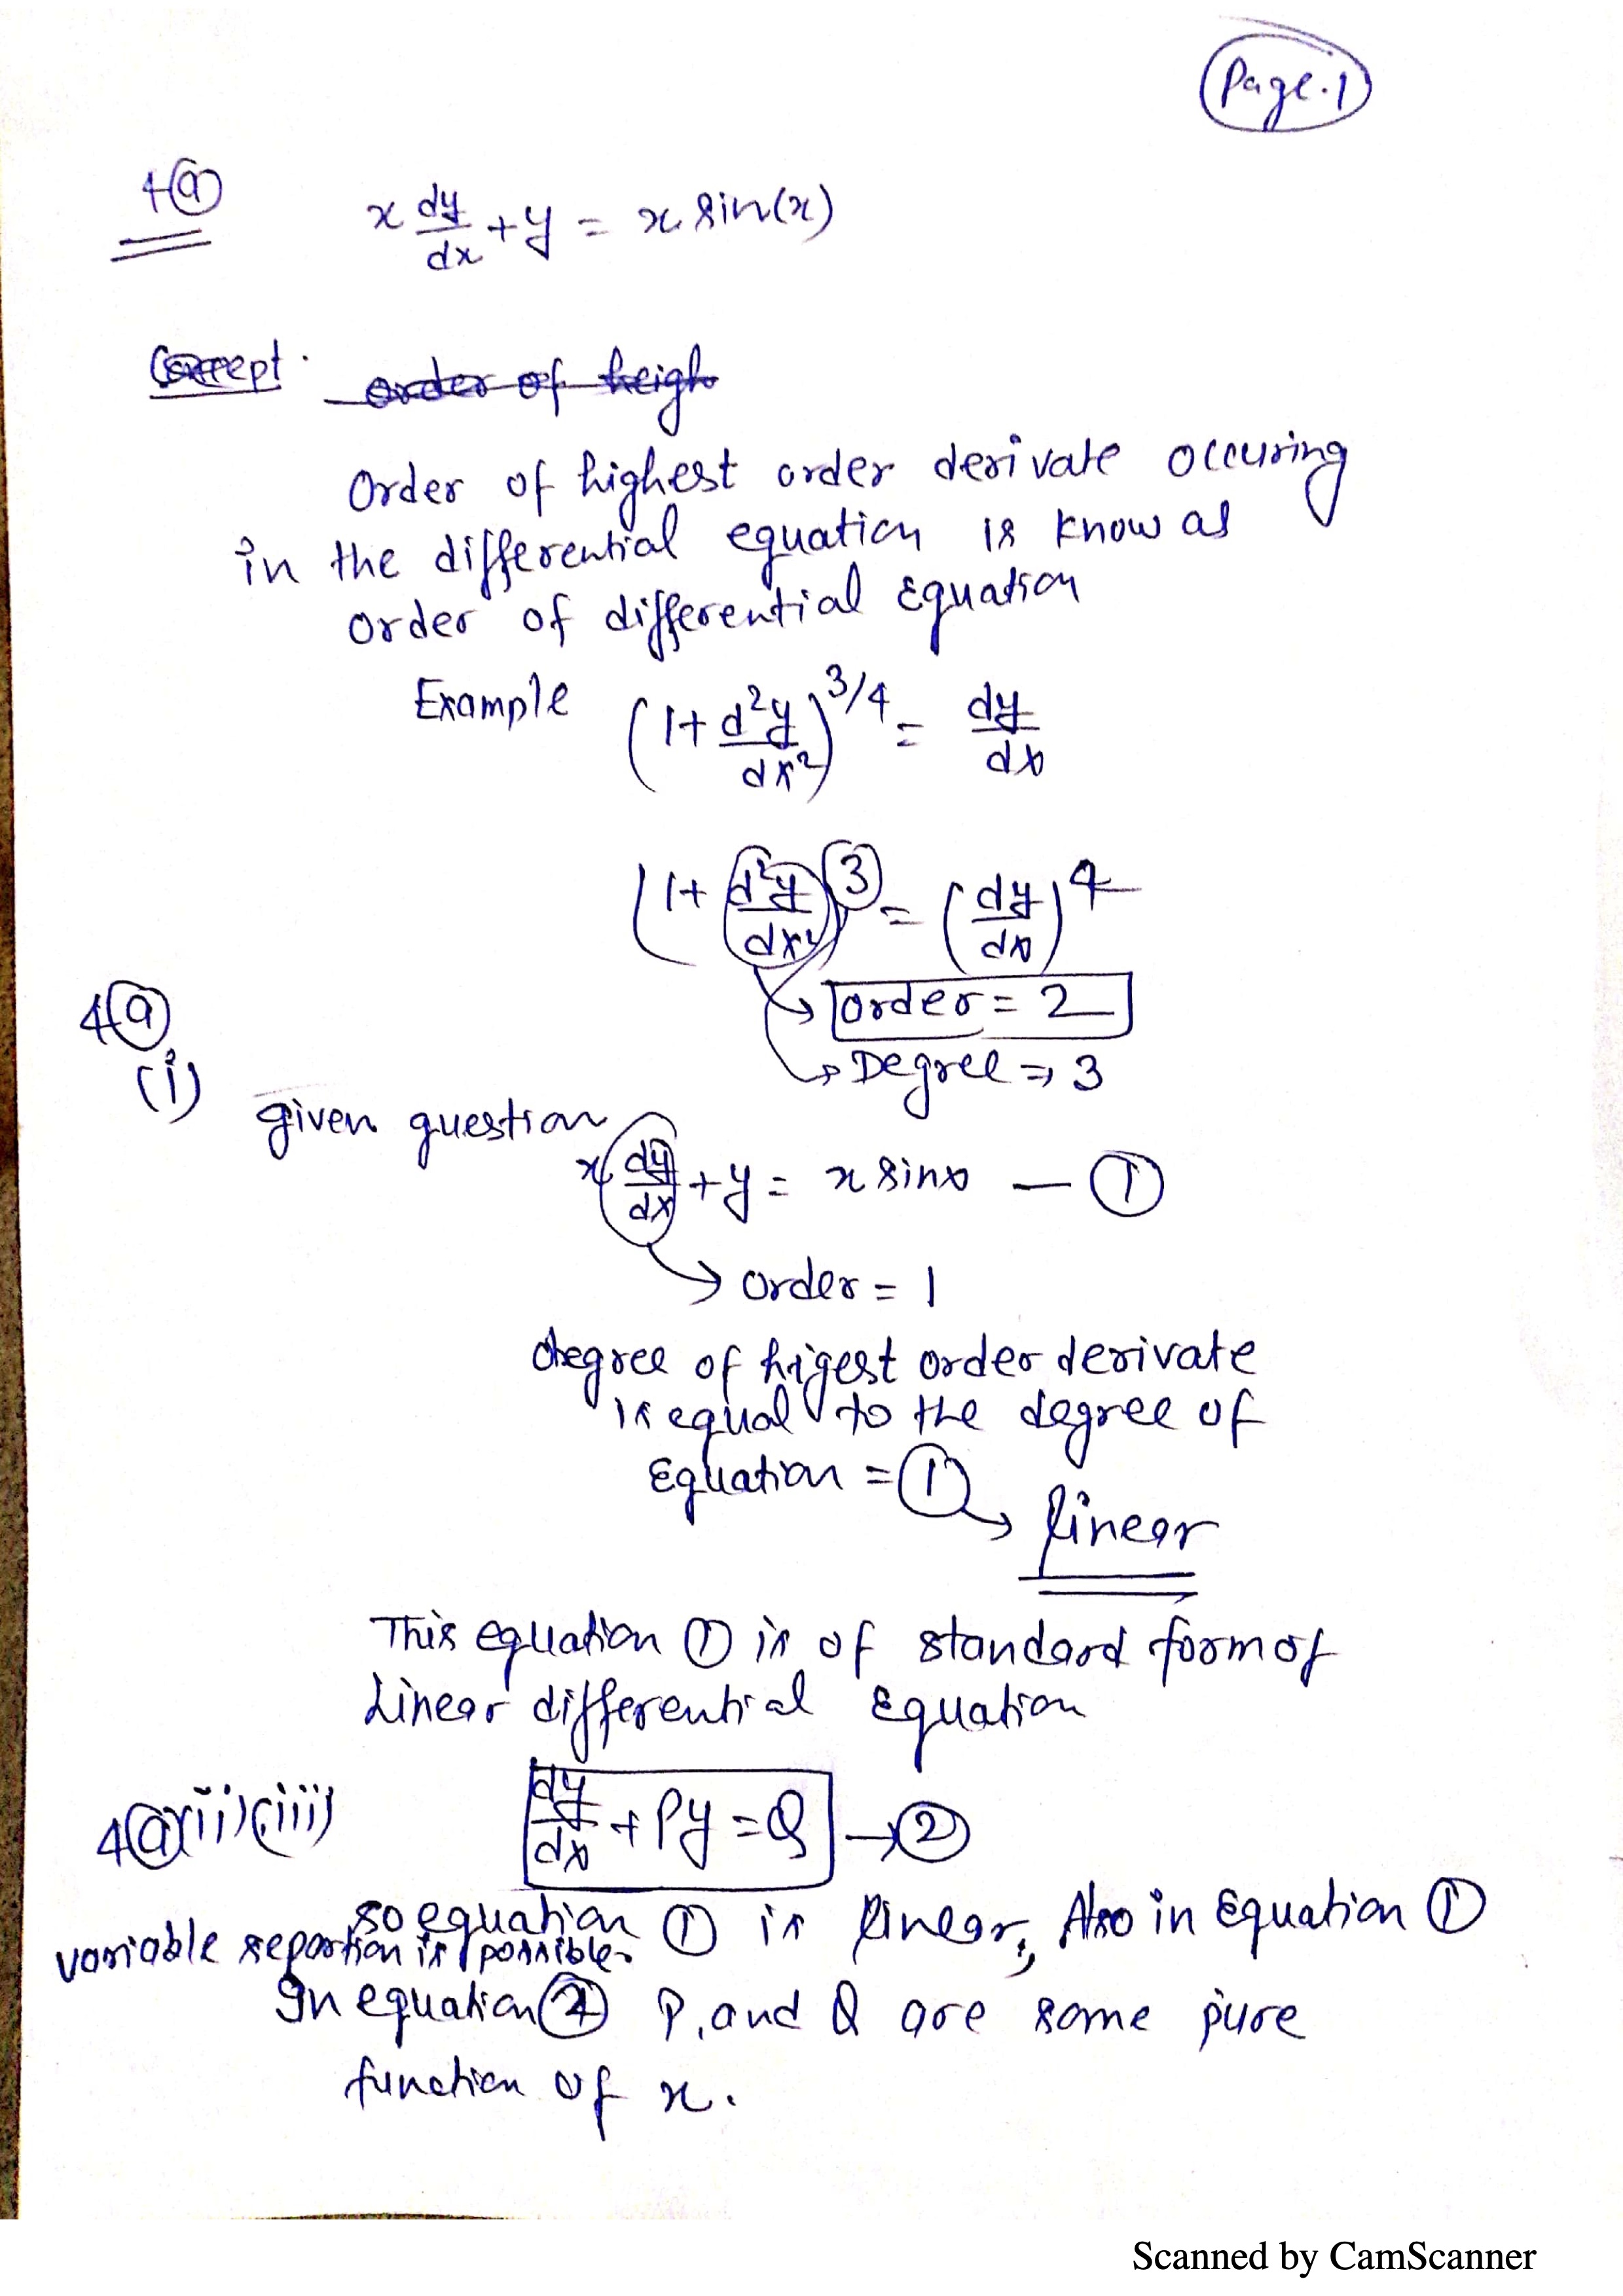 Page.1
4(a)
x dy/dx + y = x sin(x)
Concept. order of heigh
Order of highest order derivate occuring
in the differential equation is know as
order of differential Equation
Example (1+ d²y/dx²)^3/4 = dy/dx
(1+ d²y/dx²)^3 = (dy/dx)^4
→ order = 2
→ Degree ⇒ 3
4(a)
(i)
given question
x dy/dx + y = x sinx — ①
→ order = 1
degree of higest order derivate
is equal to the degree of
Equation = ① → linear
This equation ① is of standard form of
Linear differential Equation
4(a)(ii)(iii) dy/dx + Py = Q → ②
so equation ① is linear, Also in Equation ①
variable separtion is possible.
In equation ② P, and Q are some pure
function of x.
Scanned by CamScanner